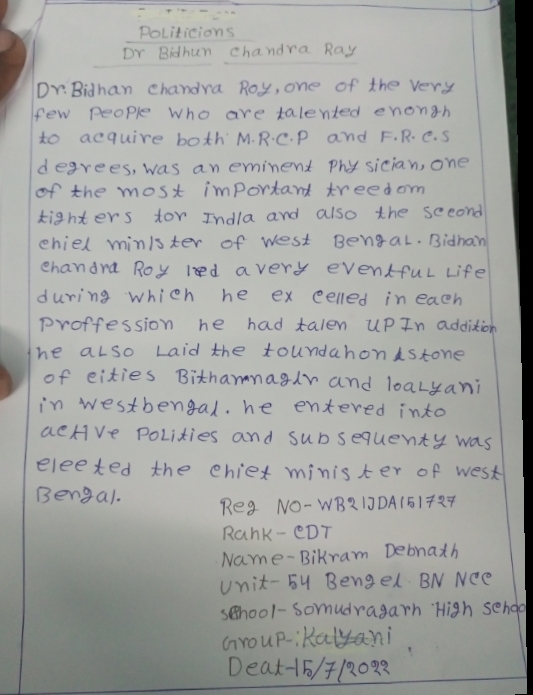 Politicions
Dr Bidhun Chandra Ray
Dr. Bidhan Chandra Roy, one of the very
few People who are talented enongh
to acquire both M.R.C.P and F.R.C.S
degrees, was an eminent Phy sician, one
of the most important treedom
tighters tor India and also the second
chiel minister of west Bengal. Bidhan
Chandra Roy led a very eventful Life
during which he ex celled in each
Proffession he had talen UP In addition
he also Laid the toundahon stone
of cities Bithannagar and loalyani
in westbengal. he entered into
active Polities and subsequenty was
eleeted the chiet minister of West
Bengal.
Reg NO-WB21JDA151727
Rahk-CDT
Name-Bikram Debnath
Unit-54 Bengel BN NCC
School-Somudragarh High Schoo
Group-:Kalyani
Deat-15/7/2022